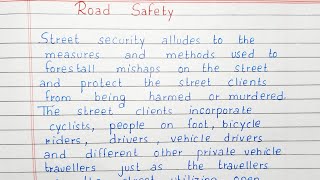 Road Safety
Street security alludes to the
measures and methods used to
forestall mishaps on the street
and protect the street clients
from being harmed or murdered.
The street clients incorporate
cyclists, people on foot, bicycle
riders, drivers, vehicle drivers
and different other private vehicle
travellers just as the travellers
the street utilizing open